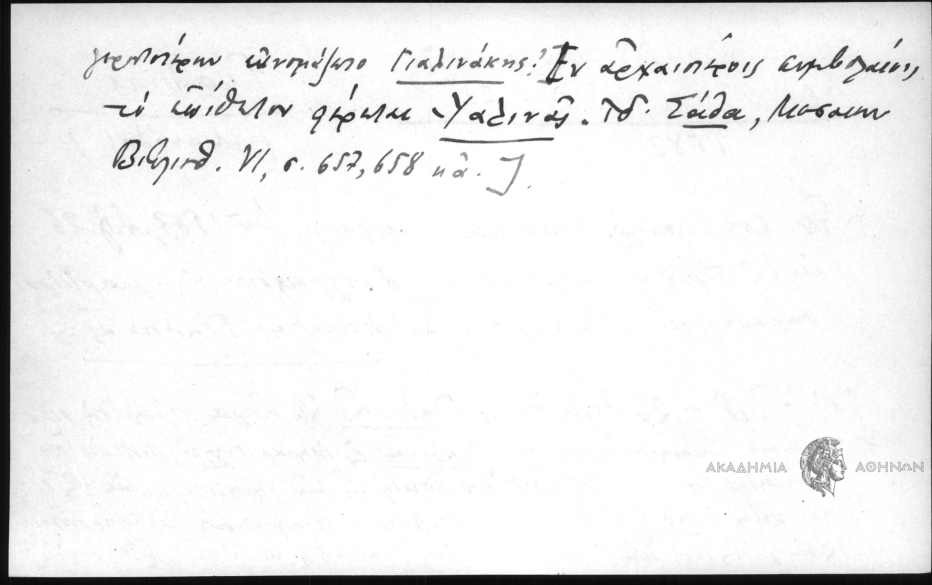 ὠνομάζετο Γιαλινάκης! [Ἐν ἀρχαιοτέροις συμβολαίοις
τὸ ἐπίθετον φέρεται Ὑαλινᾶς. Ἰδ. Σάθα, Μεσαιων
Βιβλιοθ. VI, σ. 657, 658 κἀ.].
ΑΚΑΔΗΜΙΑ ΑΘΗΝΩΝ